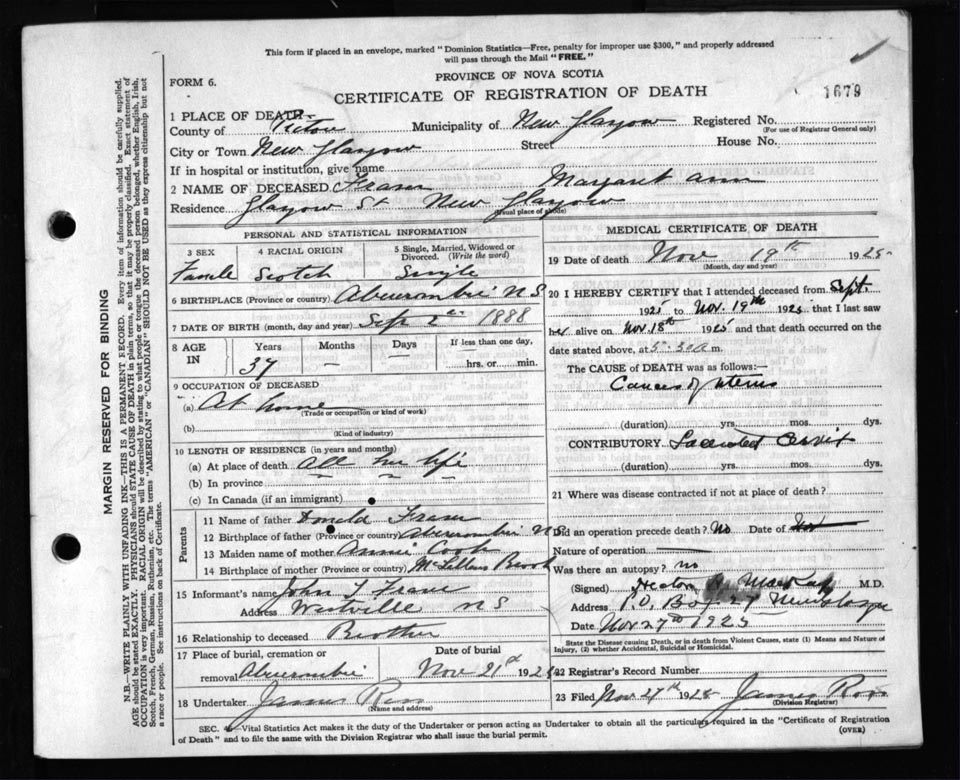 This form if placed in an envelope, marked "Dominion Statistics—Free, penalty for improper use $300," and properly addressed
will pass through the Mail "FREE."
PROVINCE OF NOVA SCOTIA
FORM 6.
CERTIFICATE OF REGISTRATION OF DEATH
1679
1 PLACE OF DEATH—
County of Pictou Municipality of New Glasgow Registered No.
(For use of Registrar General only)
City or Town New Glasgow Street House No.
If in hospital or institution, give name
2 NAME OF DECEASED Fraser Margaret Ann
Residence Glasgow St New Glasgow
(Usual place of abode)
PERSONAL AND STATISTICAL INFORMATION
3 SEX 4 RACIAL ORIGIN 5 Single, Married, Widowed or
Divorced. (Write the word)
Female Scotch Single
6 BIRTHPLACE (Province or country) Abercrombie N S
7 DATE OF BIRTH (month, day and year) Sep 2 1888
8 AGE IN Years Months Days If less than one day,
37 — — hrs. or min.
9 OCCUPATION OF DECEASED
(a) At home
(Trade or occupation or kind of work)
(b)
(Kind of industry)
10 LENGTH OF RESIDENCE (in years and months)
(a) At place of death all her life
(b) In province
(c) In Canada (if an immigrant)
Parents
11 Name of father Donald Fraser
12 Birthplace of father (Province or country) Abercrombie N S
13 Maiden name of mother Annie Cook
14 Birthplace of mother McLellans Brook
15 Informant's name John Fraser
Address Westville N S
16 Relationship to deceased Brother
17 Place of burial, cremation or Date of burial
removal Abercrombie Nov 21st 1925
18 Undertaker James Ross
(Name and address)
MEDICAL CERTIFICATE OF DEATH
19 Date of death Nov 19th 1925
(Month, day and year)
20 I HEREBY CERTIFY that I attended deceased from Sept.
1925 to Nov. 19th 1925 that I last saw
her alive on Nov. 18th 1925 and that death occurred on the
date stated above, at 5.30 a m.
The CAUSE of DEATH was as follows:—
Cancer of Uterus
(duration) yrs. mos. dys.
CONTRIBUTORY Lacerated Cervix
(duration) yrs. mos. dys.
21 Where was disease contracted if not at place of death?
Did an operation precede death? No Date of
Nature of operation —
Was there an autopsy? no
(Signed) MacKay M.D.
Address P.O. Box New Glasgow
Date Nov 27th 1925
State the Disease causing Death, or in death from Violent Causes, state (1) Means and Nature of
Injury, (2) whether Accidental, Suicidal or Homicidal.
22 Registrar's Record Number
23 Filed Nov 27th 1925 James Ross
(Division Registrar)
SEC. 4—Vital Statistics Act makes it the duty of the Undertaker or person acting as Undertaker to obtain all the particulars required in the "Certificate of Registration
of Death" and to file the same with the Division Registrar who shall issue the burial permit.
(OVER)
MARGIN RESERVED FOR BINDING
N.B.—WRITE PLAINLY WITH UNFADING INK—THIS IS A PERMANENT RECORD. Every item of information should be carefully supplied.
AGE should be stated EXACTLY. PHYSICIANS should STATE CAUSE OF DEATH in plain terms, so that it may be properly classified. Exact statement of
OCCUPATION is very important. RACIAL ORIGIN will be described by stating to what people or tongue the deceased person belonged, whether English, Irish,
Scotch, French, German, Russian, Ruthenian, etc. The terms "AMERICAN" or "CANADIAN" SHOULD NOT BE USED as they express citizenship but not
a race or people. See instructions on back of Certificate.